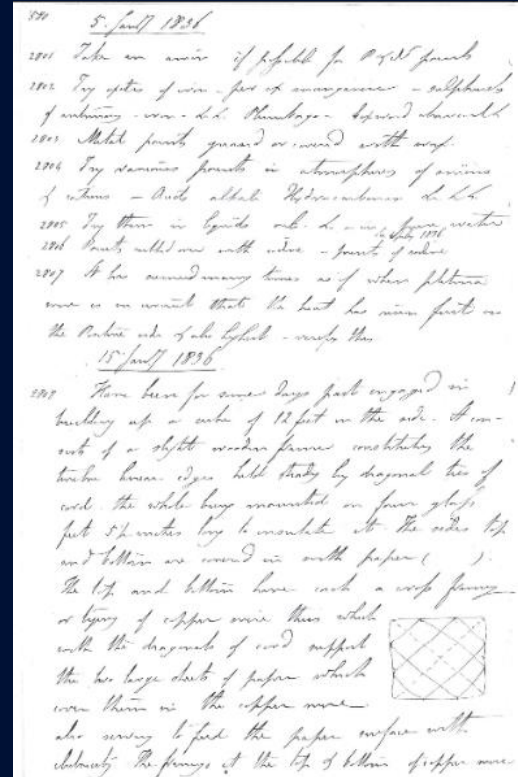 5. Jany 1836
2001 Take an if possible for points
2002. Try of iron - per ox manganese - sulphurets
of antimony - iron - &c. &c. Plumbago - charcoal
2003 Metal points or covered with
2004 Try various points in atmospheres of various
- Acids alkali Hydrocarbons &c. &c.
2005 Try them in liquids water
2006 Points rubbed over with iodine - points of iodine
2007 It has seemed many times as if when platina
wire is that the heat has risen first on
the Positive side & also highest - verify this
15 Jany 1836
2808 Have been for some days past engaged in
building up a cube of 12 feet in the side. It con-
sists of a slight wooden frame constituting the
twelve linear edges held steady by diagonal ties of
cord, the whole being mounted on four glass
feet 5 1/2 inches long to insulate it. The sides top
and bottom are covered in with paper ( ).
The top and bottom have each a cross framing
or tying of copper wire thus which
with the diagonals of cord support
the two large sheets of paper which
cover them in the copper wire
also serving to feed the paper surface with
electricity The framings at the top & bottom of copper wire